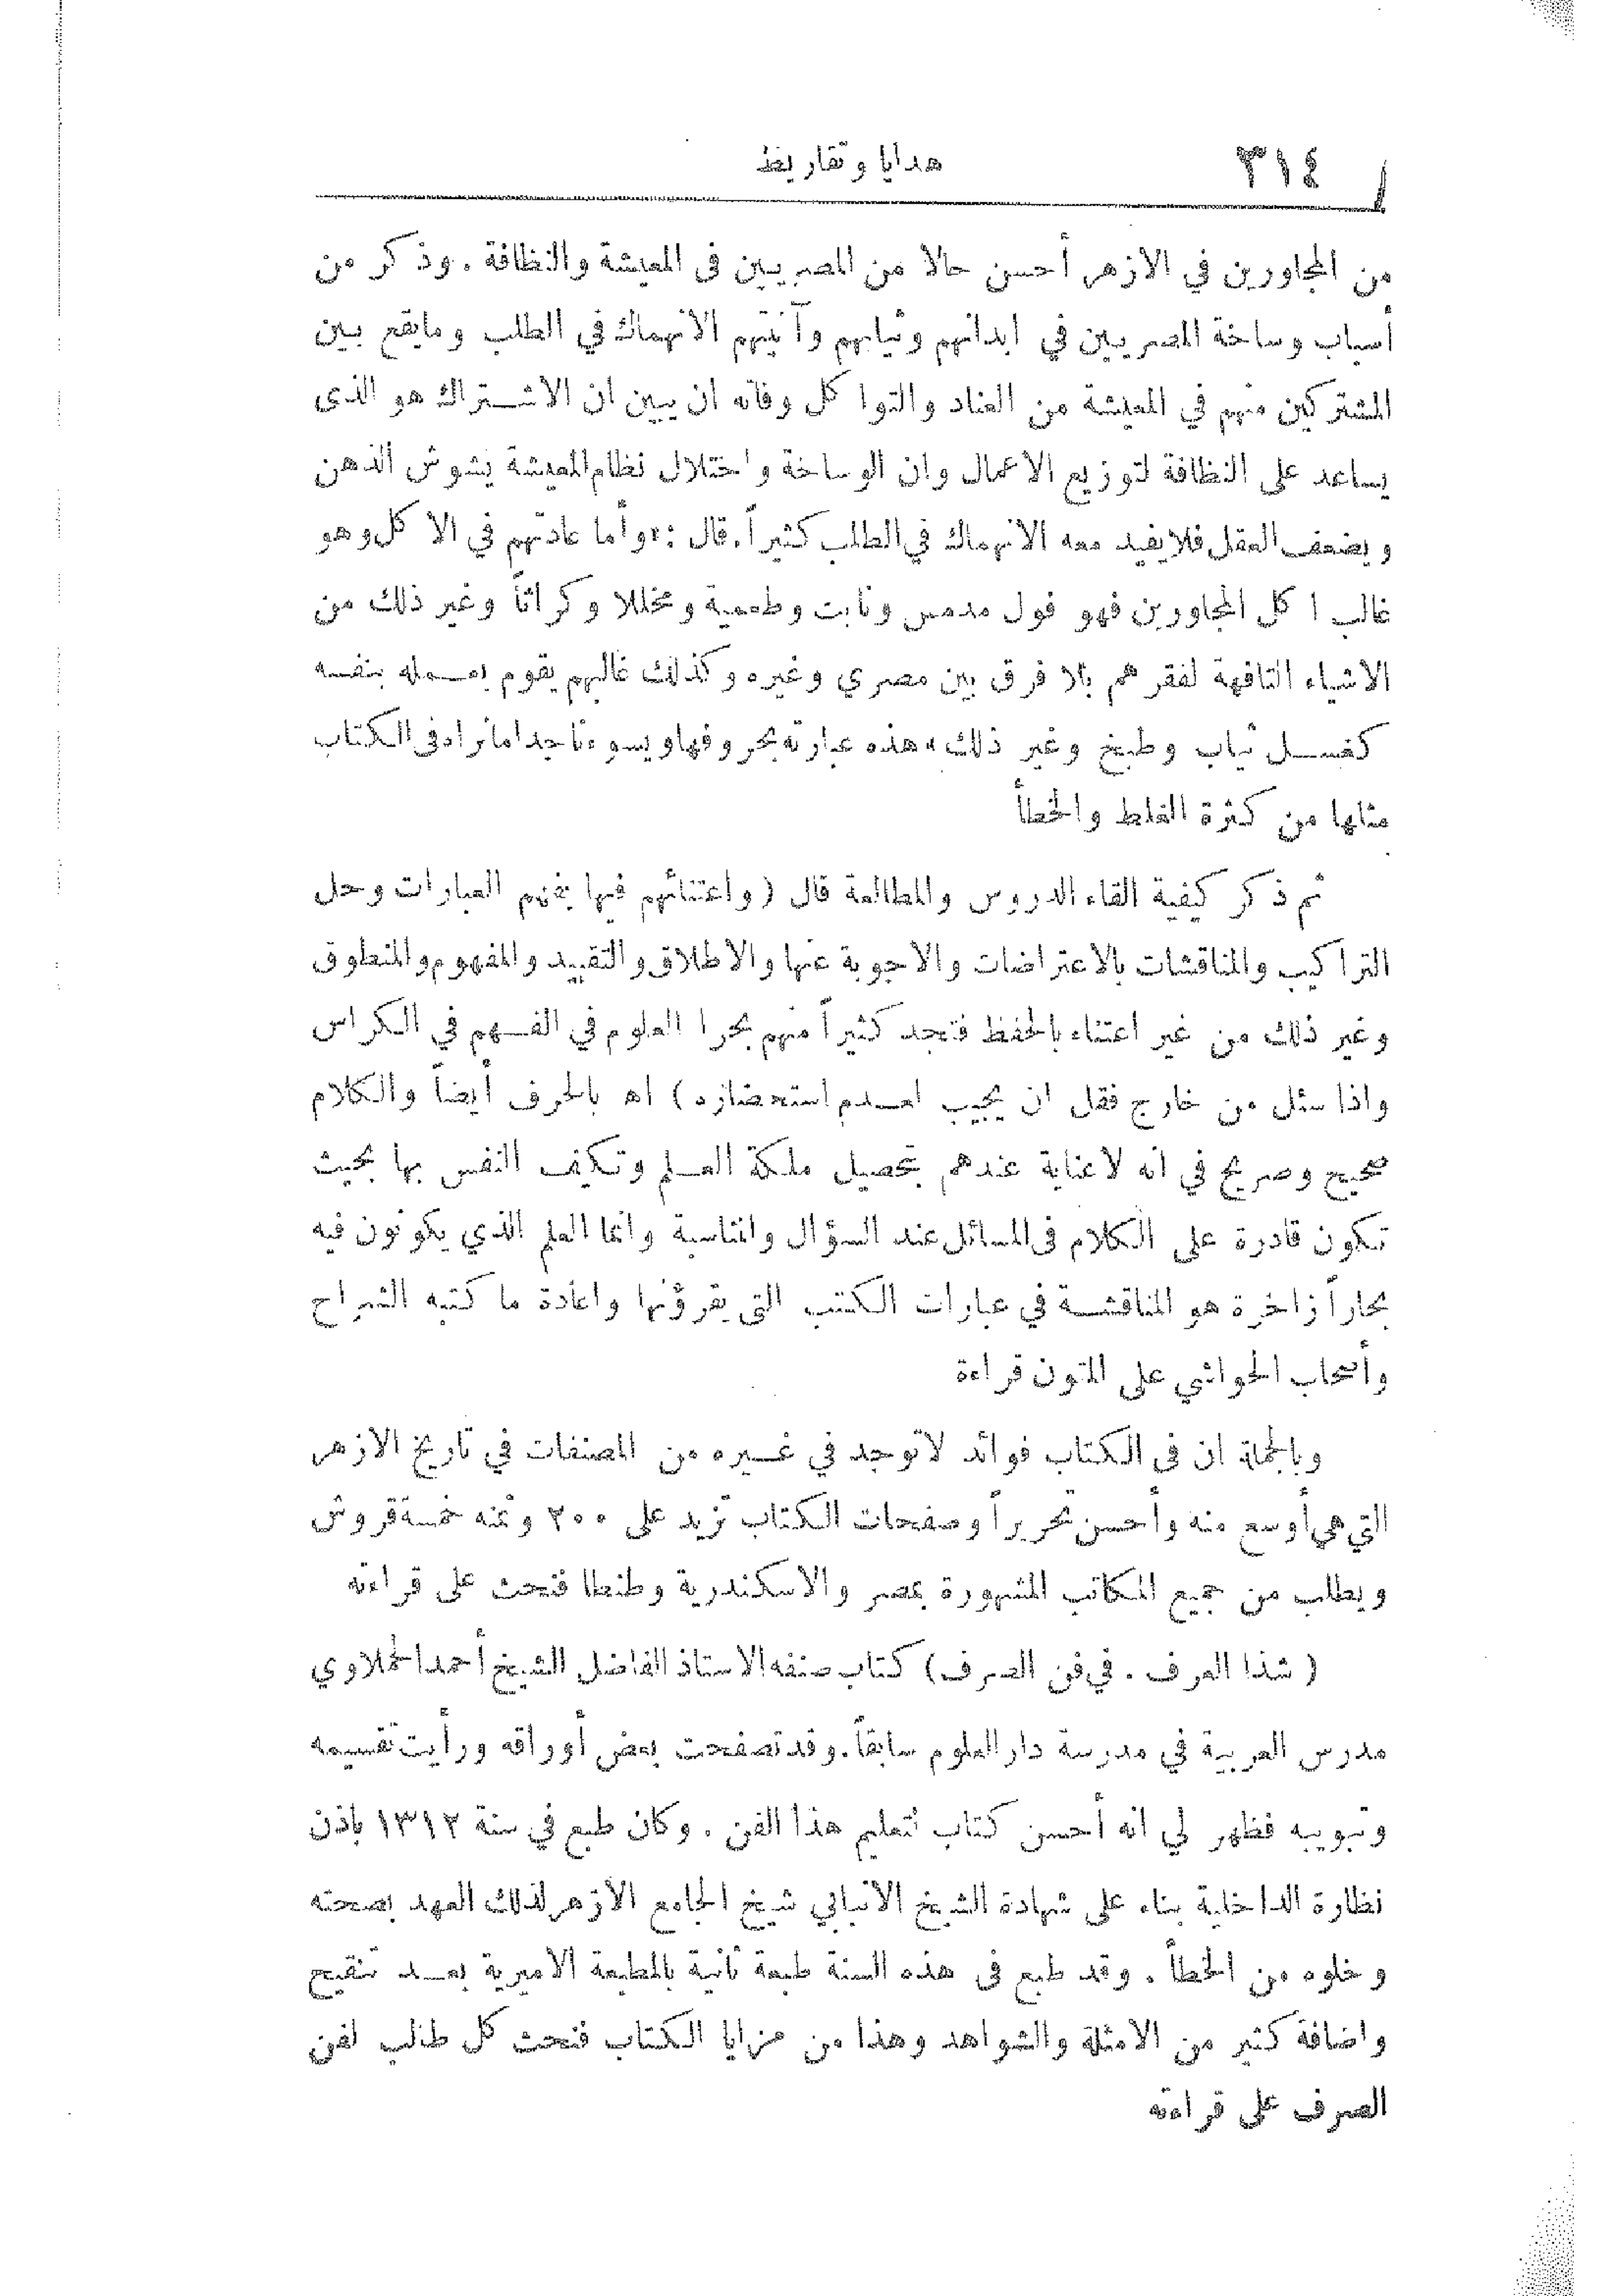 ٣١٤
هدايا وتقاريظ
من المجاورين في الازهر أحسن حالا من المصريين فى المعيشة والنظافة . وذكر من
أسباب وساخة المصريين في ابدانهم وثيابهم وآنيتهم الانهماك في الطلب ومايقع بين
المشتركين منهم في المعيشة من العناد والتواكل وفاته ان يبين ان الاشتراك هو الذى
يساعد على النظافة لتوزيع الاعمال وان الوساخة واختلال نظام المعيشة يشوش الذهن
ويضعف العقل فلا يفيد معه الانهماك في الطلب كثيراً. قال : «وأما عادتهم في الاكل وهو
غالب اكل المجاورين فهو فول مدمس ونابت وطعمية ومخللا وكراثاً وغير ذلك من
الاشياء التافهة لفقرهم بلا فرق بين مصري وغيره وكذلك غالبهم يقوم بعمله بنفسه
كغسل ثياب وطبخ وغير ذلك» هذه عبارته بحروفها ويسوءنا جدا مانراه فى الكتاب
مثلها من كثرة الغلط والخطأ
ثم ذكر كيفية القاء الدروس والمطالعة قال (واعتنائهم فيها بفهم العبارات وحل
التراكيب والمناقشات بالاعتراضات والاجوبة عنها والاطلاق والتقييد والمفهوم والمنطوق
وغير ذلك من غير اعتناء بالحفظ فتجد كثيراً منهم بحرا العلوم في الفهم في الكراس
واذا سئل من خارج فقل ان يجيب لعدم استحضاره) اه بالحرف أيضاً والكلام
صحيح وصريح في انه لا عناية عندهم بتحصيل ملكة العلم وتكيف النفس بها بحيث
تكون قادرة على الكلام فى المسائل عند السؤال والمناسبة وانما العلم الذي يكونون فيه
بحاراً زاخرة هو المناقشة في عبارات الكتب التى يقرؤنها واعادة ما كتبه الشراح
وأصحاب الحواشي على المتون قراءة
وبالجملة ان فى الكتاب فوائد لاتوجد في غيره من المصنفات في تاريخ الازهر
التي هي أوسع منه وأحسن تحريراً وصفحات الكتاب تزيد على ٢٠٠ وثمنه خمسة قروش
ويطلب من جميع المكاتب المشهورة بمصر والاسكندرية وطنطا فنحث على قراءته
( شذا العرف . في فن الصرف) كتاب صنفه الاستاذ الفاضل الشيخ أحمد الحملاوي
مدرس العربية في مدرسة دار العلوم سابقاً. وقد تصفحت بعض أوراقه ورأيت تقسيمه
وتبويبه فظهر لي انه أحسن كتاب لتعليم هذا الفن . وكان طبع في سنة ١٣١٢ باذن
نظارة الداخلية بناء على شهادة الشيخ الانبابي شيخ الجامع الازهر لذلك العهد بصحته
وخلوه من الخطأ . وقد طبع فى هذه السنة طبعة ثانية بالمطبعة الاميرية بعد تنقيح
واضافة كثير من الامثلة والشواهد وهذا من مزايا الكتاب فنحث كل طالب لفن
الصرف على قراءته